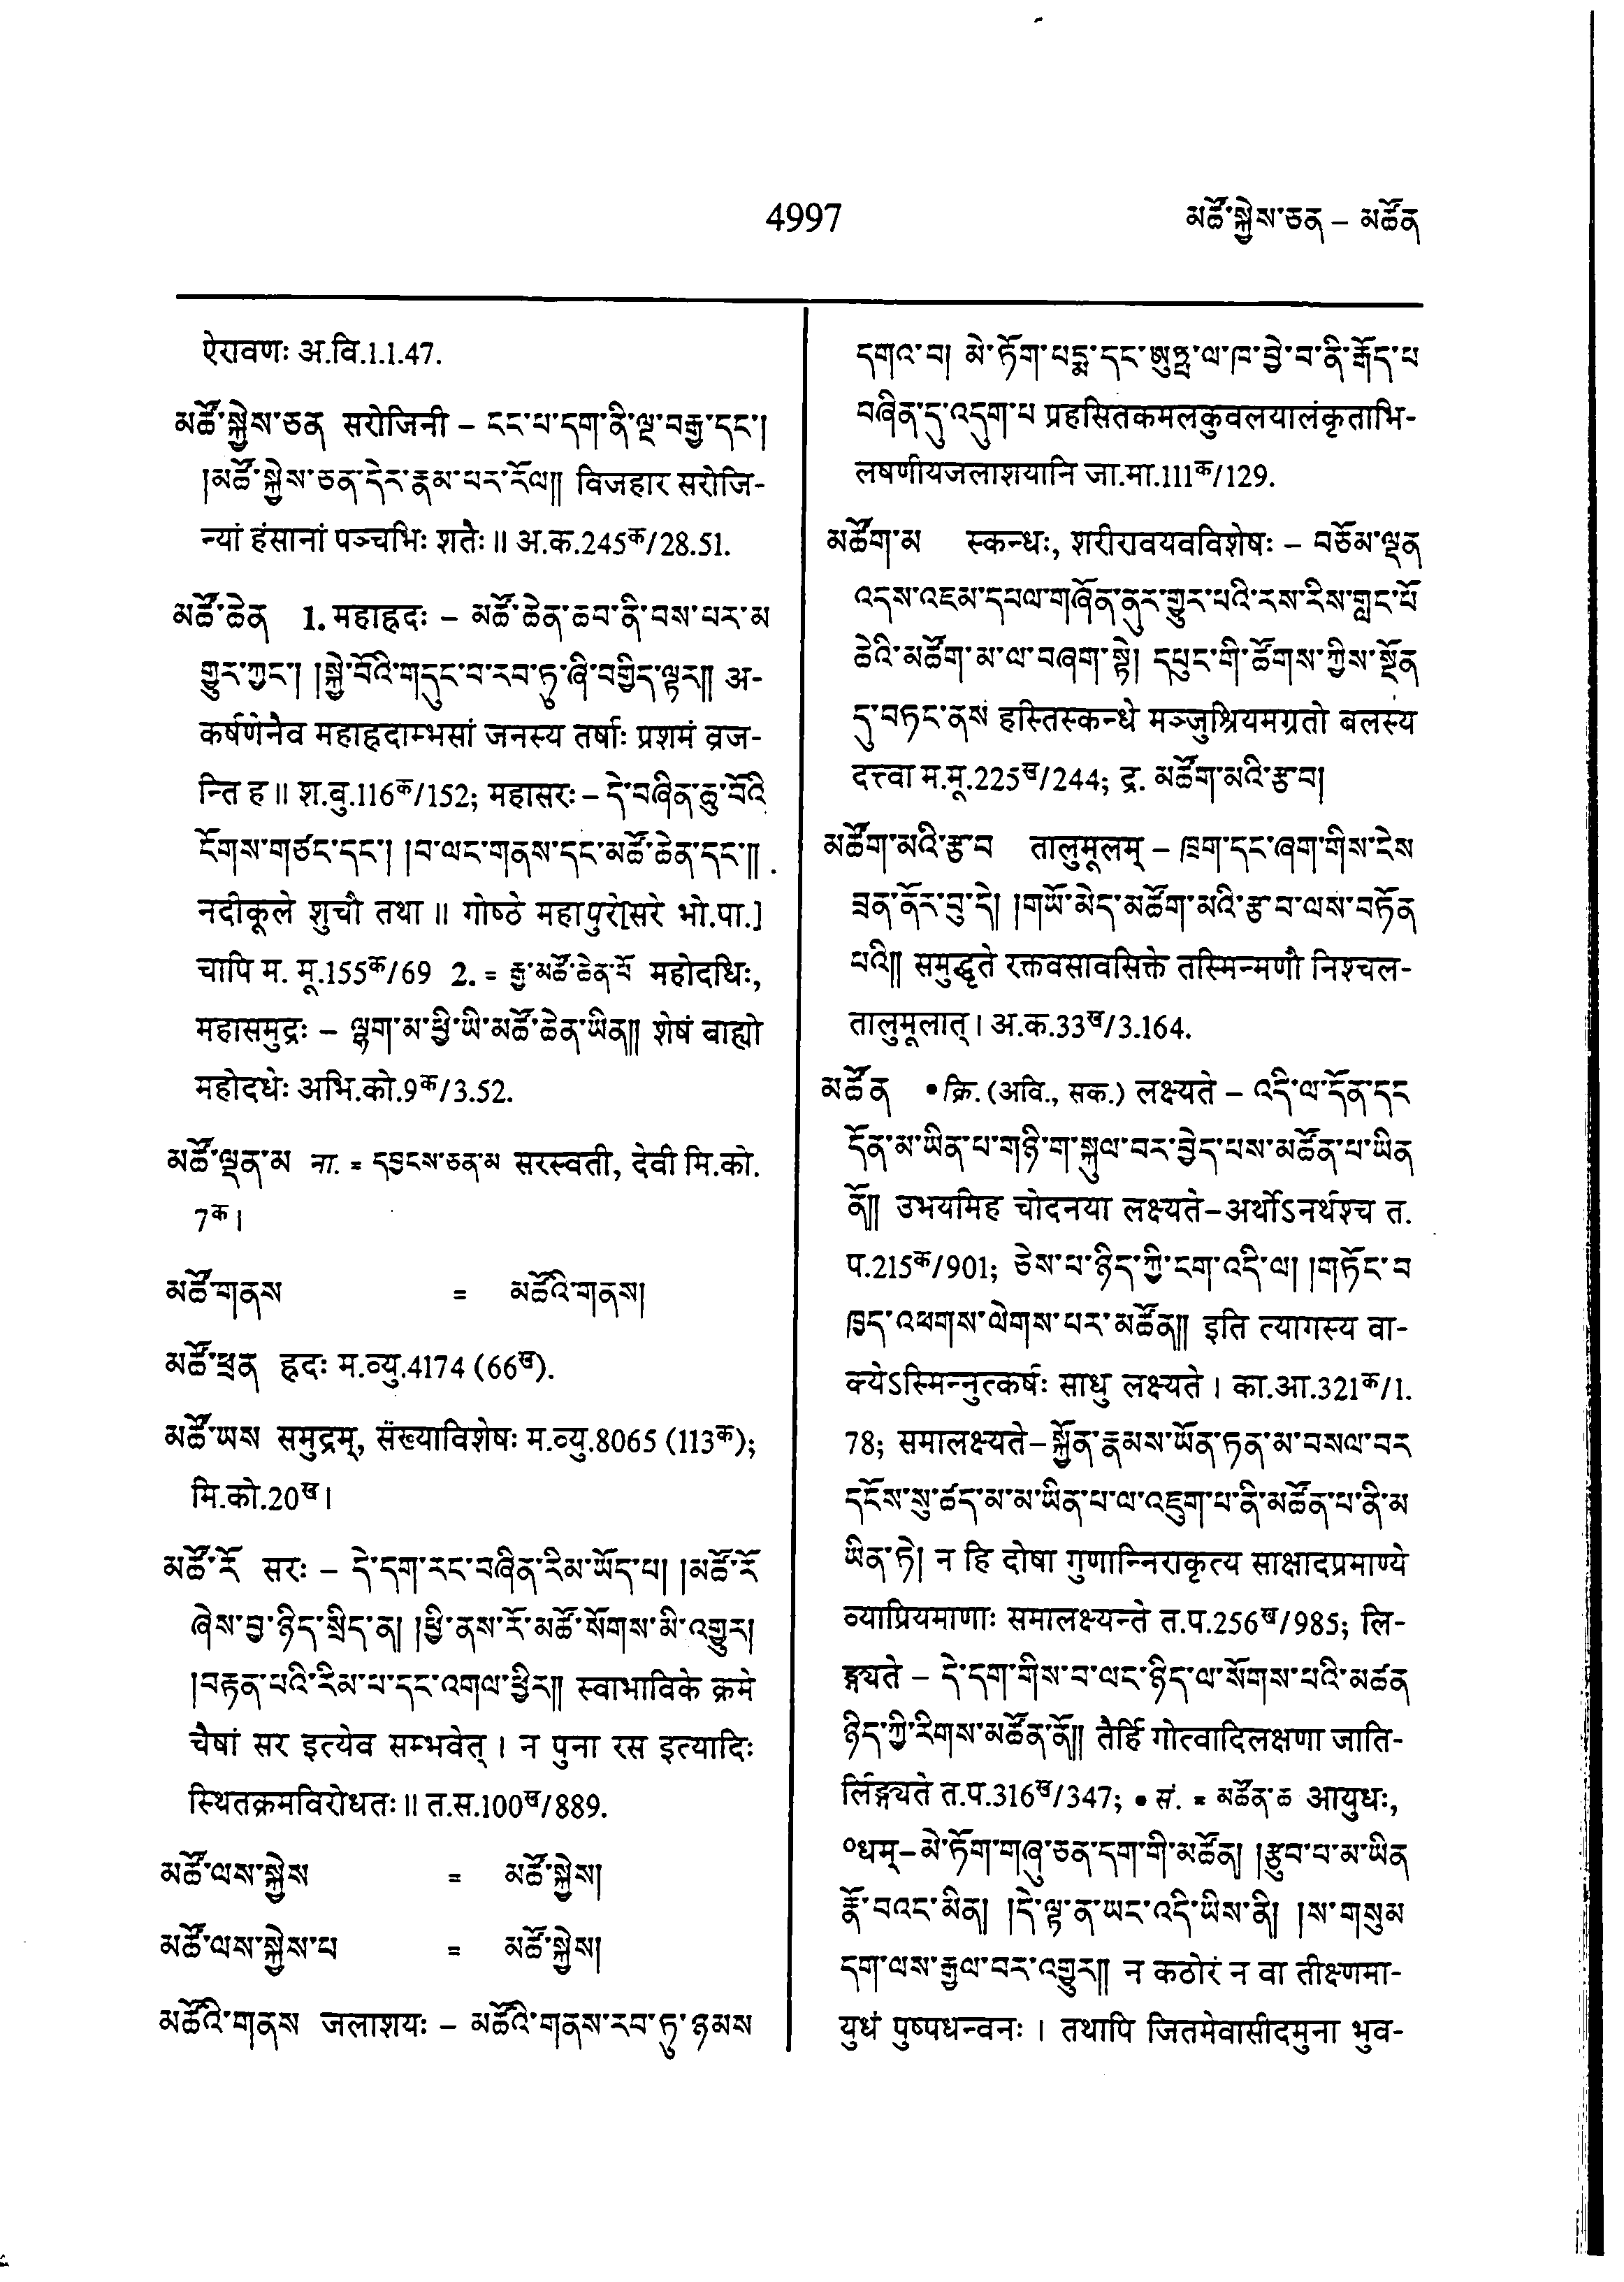 4997
མཚོ་སྐྱེས་ཅན – མཚོན
ऐरावणः अ.वि.1.1.47.
མཚོ་སྐྱེས་ཅན सरोजिनी – ངང་པ་དག་ནི་ལྔ་བརྒྱ་དང་།
།མཚོ་སྐྱེས་ཅན་དེར་རྣམ་པར་རོལ།། विजहार सरोजि-
न्यां हंसानां पञ्चभिः शतैः ॥ अ.क.245क/28.51.
མཚོ་ཆེན 1. महाह्रदः – མཚོ་ཆེན་ཆབ་ནི་བས་པར་མ
གྱུར་ཀྱང་། །སྐྱེ་བོའི་གདུང་བ་རབ་ཏུ་ཞི་བགྱིད་ལྟར།། अ-
कर्षणेनैव महाह्रदाम्भसां जनस्य तर्षाः प्रशमं व्रज-
न्ति ह ॥ श.बु.116क/152; महासरः – དེ་བཞིན་ཆུ་བོའི
ངོགས་གཙང་དང་། །བ་ལང་གནས་དང་མཚོ་ཆེན་དང་།།
नदीकूले शुचौ तथा ॥ गोष्ठे महापुरे[सरे भो.पा.]
चापि म. मू.155क/69 2. = རྒྱ་མཚོ་ཆེན་པོ महोदधिः,
महासमुद्रः – ལྷག་མ་ཕྱི་ཡི་མཚོ་ཆེན་ཡིན།། शेषं बाह्यो
महोदधेः अभि.को.9क/3.52.
མཚོ་ལྡན་མ ना. = དབྱངས་ཅན་མ सरस्वती, देवी मि.को.
7क।
མཚོ་གནས = མཚོའི་གནས།
མཚོ་ཕྲན ह्रदः म.व्यु.4174 (66ख).
མཚོ་ཡས समुद्रम्, संख्याविशेषः म.व्यु.8065 (113क);
मि.को.20ख।
མཚོ་རོ सरः – དེ་དག་རང་བཞིན་རིམ་ཡོད་པ། །མཚོ་རོ
ཞེས་བྱ་ཉིད་སྲིད་ན། །ཕྱི་ནས་རོ་མཚོ་སོགས་མི་འགྱུར།
།བརྟན་པའི་རིམ་པ་དང་འགལ་ཕྱིར།། स्वाभाविके क्रमे
चैषां सर इत्येव सम्भवेत् । न पुना रस इत्यादिः
स्थितक्रमविरोधतः ॥ त.स.100ख/889.
མཚོ་ལས་སྐྱེས = མཚོ་སྐྱེས།
མཚོ་ལས་སྐྱེས་པ = མཚོ་སྐྱེས།
མཚོའི་གནས जलाशयः – མཚོའི་གནས་རབ་ཏུ་ཉམས
དགའ་བ། མེ་ཏོག་པདྨ་དང་ཨུཏྤ་ལ་ཁ་བྱེ་བ་ནི་རྒོད་པ
བཞིན་དུ་འདུག་པ प्रहसितकमलकुवलयालंकृताभि-
लषणीयजलाशयानि जा.मा.111क/129.
མཚོག་མ स्कन्धः, शरीरावयवविशेषः – བཅོམ་ལྡན
འདས་འཇམ་དཔལ་གཞོན་ནུར་གྱུར་པའི་རས་རིས་གླང་པོ
ཆེའི་མཚོག་མ་ལ་བཞག་སྟེ། དཔུང་གི་ཚོགས་ཀྱིས་སྔོན
དུ་བཏང་ནས हस्तिस्कन्धे मञ्जुश्रियमग्रतो बलस्य
दत्त्वा म.मू.225ख/244; द्र. མཚོག་མའི་རྩ་བ།
མཚོག་མའི་རྩ་བ तालुमूलम् – ཁྲག་དང་ཞག་གིས་ངེས
བྲན་ནོར་བུ་དེ། །གཡོ་མེད་མཚོག་མའི་རྩ་བ་ལས་བཏོན
པའི།། समुद्धृते रक्तवसावसिक्ते तस्मिन्मणौ निश्चल-
तालुमूलात् । अ.क.33ख/3.164.
མཚོན • क्रि. (अवि., सक.) लक्ष्यते – འདི་ལ་དོན་དང
དོན་མ་ཡིན་པ་གཉི་ག་སྐུལ་བར་བྱེད་པས་མཚོན་པ་ཡིན
ནོ།། उभयमिह चोदनया लक्ष्यते–अर्थोऽनर्थश्च त.
प.215क/901; ཅེས་པ་ཉིད་ཀྱི་ངག་འདི་ལ། །གཏོང་བ
ཁྱད་འཕགས་ལེགས་པར་མཚོན།། इति त्यागस्य वा-
क्येऽस्मिन्नुत्कर्षः साधु लक्ष्यते । का.आ.321क/1.
78; समालक्ष्यते–སྐྱོན་རྣམས་ཡོན་ཏན་མ་བསལ་བར
དངོས་སུ་ཚད་མ་མ་ཡིན་པ་ལ་འཇུག་པ་ནི་མཚོན་པ་ནི་མ
ཡིན་ཏེ། न हि दोषा गुणान्निराकृत्य साक्षादप्रमाण्ये
व्याप्रियमाणाः समालक्ष्यन्ते त.प.256ख/985; लि-
ङ्ग्यते – དེ་དག་གིས་བ་ལང་ཉིད་ལ་སོགས་པའི་མཚན
ཉིད་ཀྱི་རིགས་མཚོན་ནོ།། तैर्हि गोत्वादिलक्षणा जाति-
र्लिङ्ग्यते त.प.316ख/347; • सं. = མཚོན་ཆ आयुधः,
०धम्–མེ་ཏོག་གཞུ་ཅན་དག་གི་མཚོན། །རྩུབ་པ་མ་ཡིན
རྣོ་བའང་མིན། །དེ་ལྟ་ན་ཡང་འདི་ཡིས་ནི། །ས་གསུམ
དག་ལས་རྒྱལ་བར་འགྱུར།། न कठोरं न वा तीक्ष्णमा-
युधं पुष्पधन्वनः । तथापि जितमेवासीदमुना भुव-